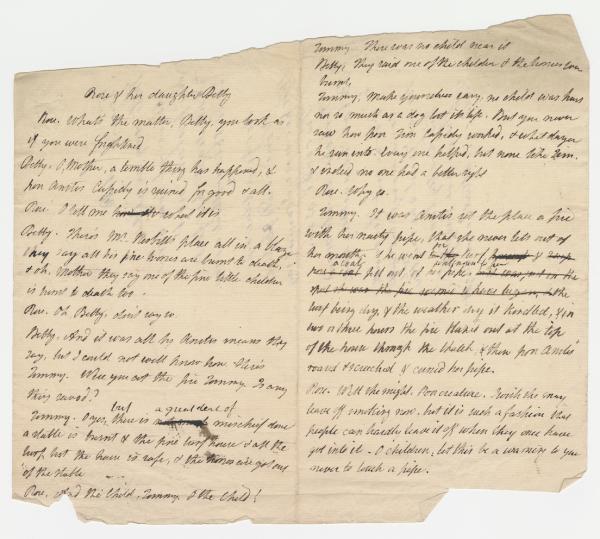 Rose & her daughter Betty
Rose. What's the matter, Betty, you look as
if you were frightened
Betty. O, Mother, a terrible thing has happened, &
poor Anstis Cupidy is ruined for good & all.
Rose. O tell me what it is
Betty. There's Mr. Nesbitt's place all in a blaze
they say all his fine horses are burnt to death,
& oh, Mother they say one of the fine little children
is burnt to death too.
Rose. Oh Betty, don't say so.
Betty. And it was all his Anstis means they
say, but I could not well know how. Here's
Tommy. Were you at the fire Tommy. Is any
thing saved?
Tommy. O yes, but there is a great deal of mischief done
a stable is burnt & the fine turf house & all the
turf, but the house is safe, & the horses were got out
of the stable
Rose, And the Child, Tommy, O the Child!
Tommy. There was no child near it
Betty, They said one of the childer & the horses were
burnt,
Tommy, Make yourselves easy, no child was hurt
nor so much as a dog lost its life. But you never
saw how poor Tim Cupidy worked, & what danger
he run into. Every one helped, but none like Tim.
& indeed no one had a better right
Rose. Why so.
Tommy. It was Anstis set the place a fire
with her nasty pipe, that she never lets out of
her mouth. She went for turf &
a coal fell out of her pipe, the
turf being dry, & the weather dry it kindled, & in
two or three hours the fire blazed out at the top
of the house through the thatch & then poor Anstis
roared & screeched & cursed her pipe.
Rose. Well she might. Poor creature. I wish she may
leave off smoking now, but it is such a fashion that
people can hardly leave it off when they once have
got into it. O children, let this be a warning to you
never to touch a pipe.